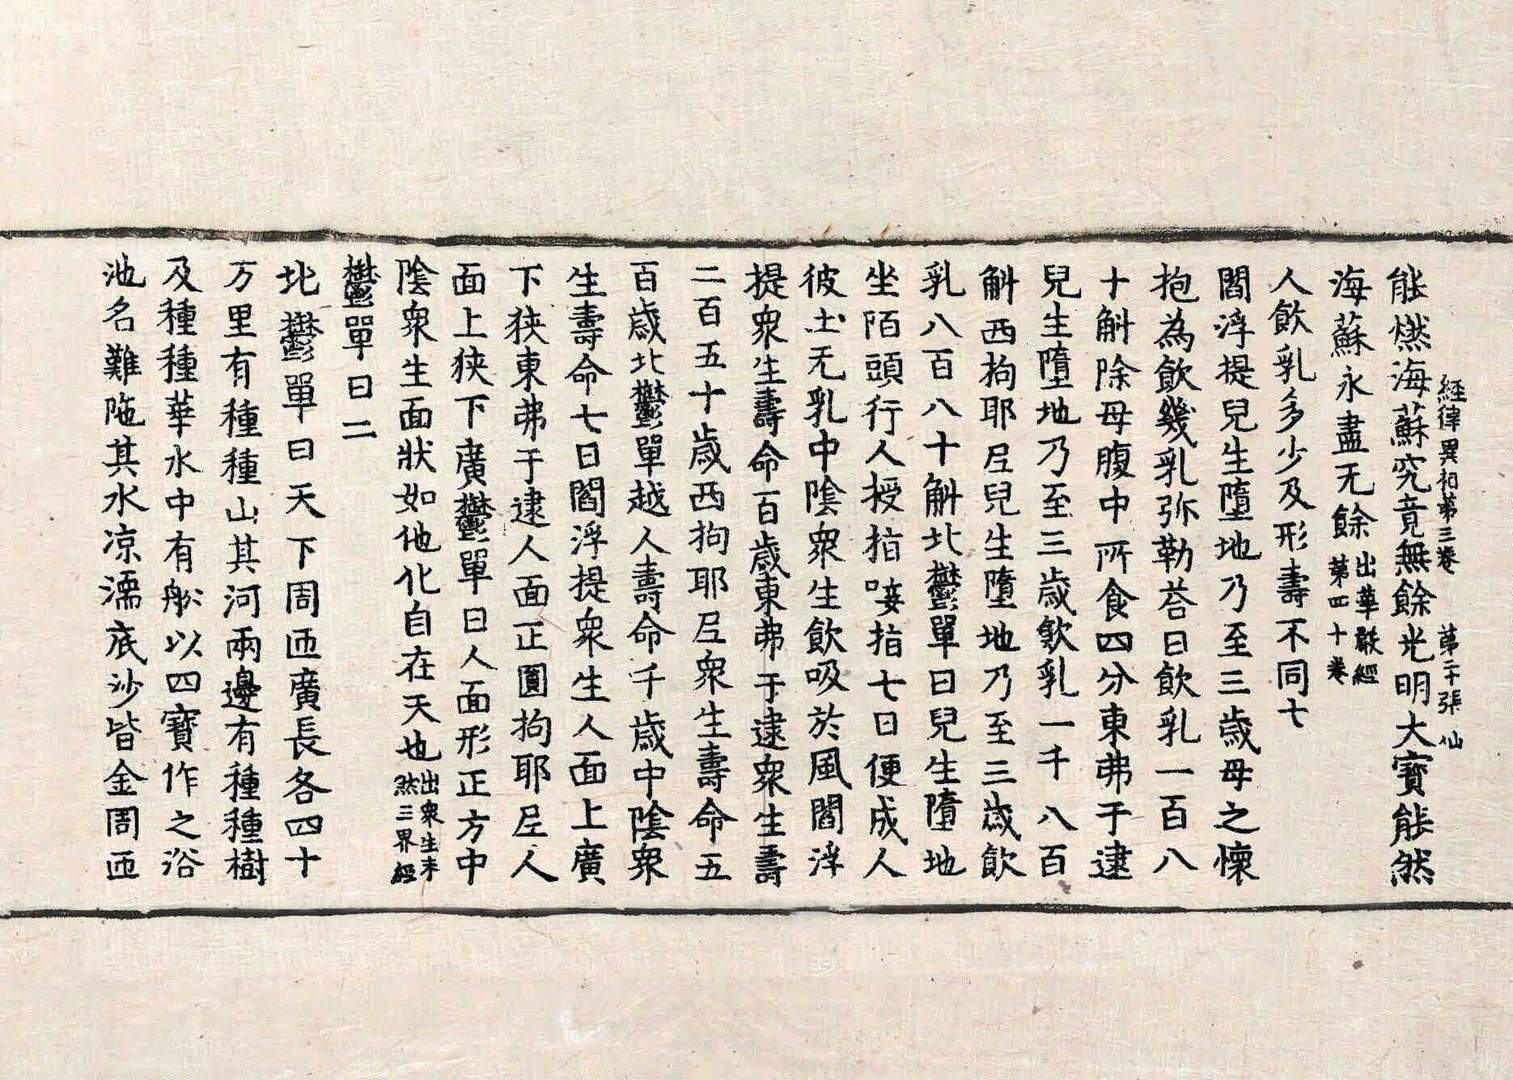 經律異相第三卷　第二十張　仙
能燃海蘇究竟無餘光明大寶能然
海蘇永盡无餘出華嚴經第四十卷
人飲乳多少及形壽不同七
閻浮提兒生墮地乃至三歲母之懷
抱為飲幾乳弥勒荅曰飲乳一百八
十斛除母腹中所食四分東弗于逮
兒生墮地乃至三歲飲乳一千八百
斛西拘耶尼兒生墮地乃至三歲飲
乳八百八十斛北欝單曰兒生墮地
坐陌頭行人授指唼指七日便成人
彼土无乳中陰衆生飲吸於風閻浮
提衆生壽命百歲東弗于逮衆生壽
二百五十歲西拘耶尼衆生壽命五
百歲北欝單越人壽命千歲中陰衆
生壽命七日閻浮提衆生人面上廣
下狹東弗于逮人面正圓拘耶尼人
面上狹下廣欝單曰人面形正方中
陰衆生面狀如他化自在天也出衆生未然三界經
欝單曰二
北欝單曰天下周匝廣長各四十
万里有種種山其河兩邊有種種樹
及種種華水中有舩以四寶作之浴
池名難陁其水凉濡底沙皆金周匝